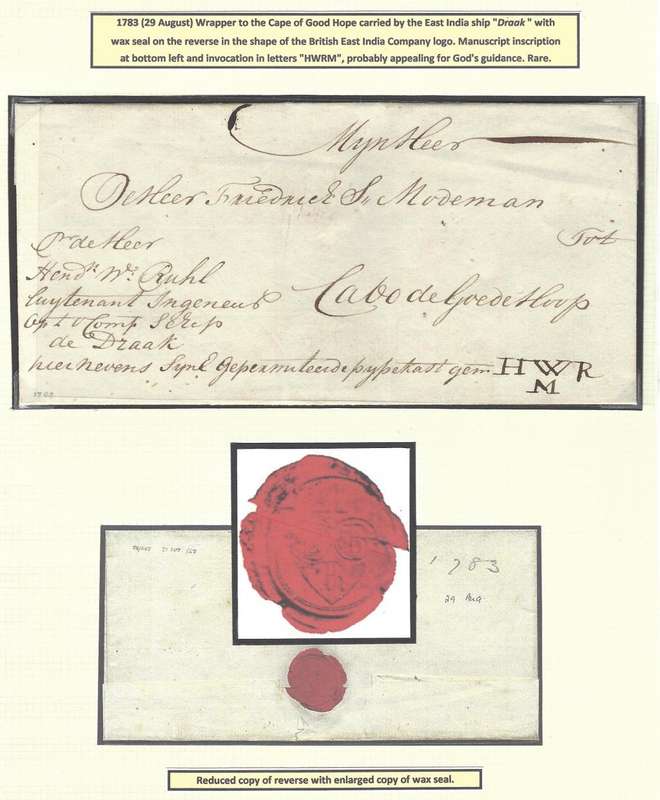 1783 (29 August) Wrapper to the Cape of Good Hope carried by the East India ship "Draak" with
wax seal on the reverse in the shape of the British East India Company logo. Manuscript inscription
at bottom left and invocation in letters "HWRM", probably appealing for God's guidance. Rare.
Myn Heer
De Heer Friedrick S. Modeman
Tot
Cabo de Goede Hoop
Pr de Heer
Hendk Wm Ruhl
Luytenant Ingeneur
Opt Comp Schip
de Draak
hier nevens Syne gepermitteerde pypekast gem: H W R
M
1783
1783
29 Aug
Reduced copy of reverse with enlarged copy of wax seal.